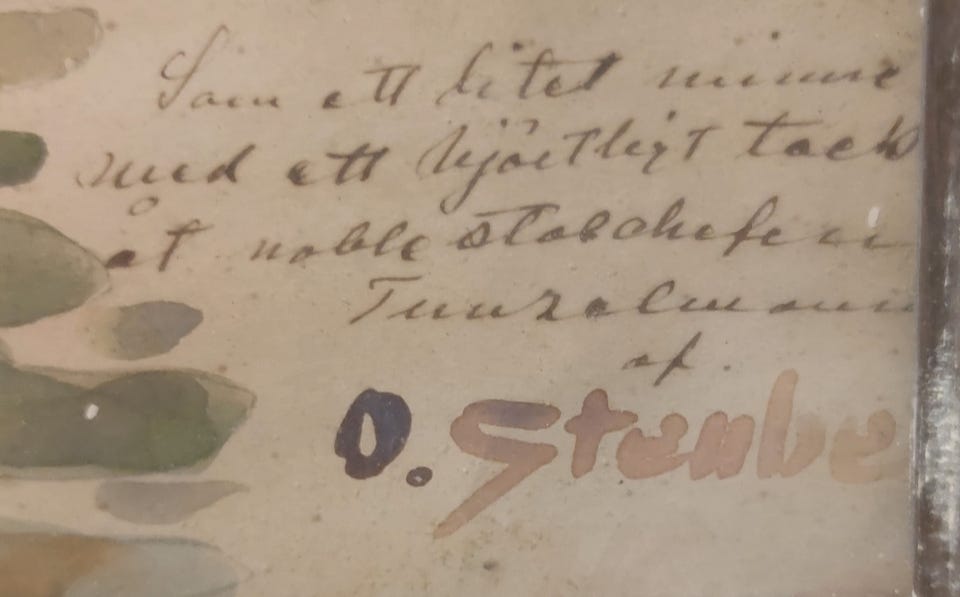 Som ett litet minne
med ett hjärtligt tack
åt noble stabchefen
Tunzelmann
af.
O. Stenbe